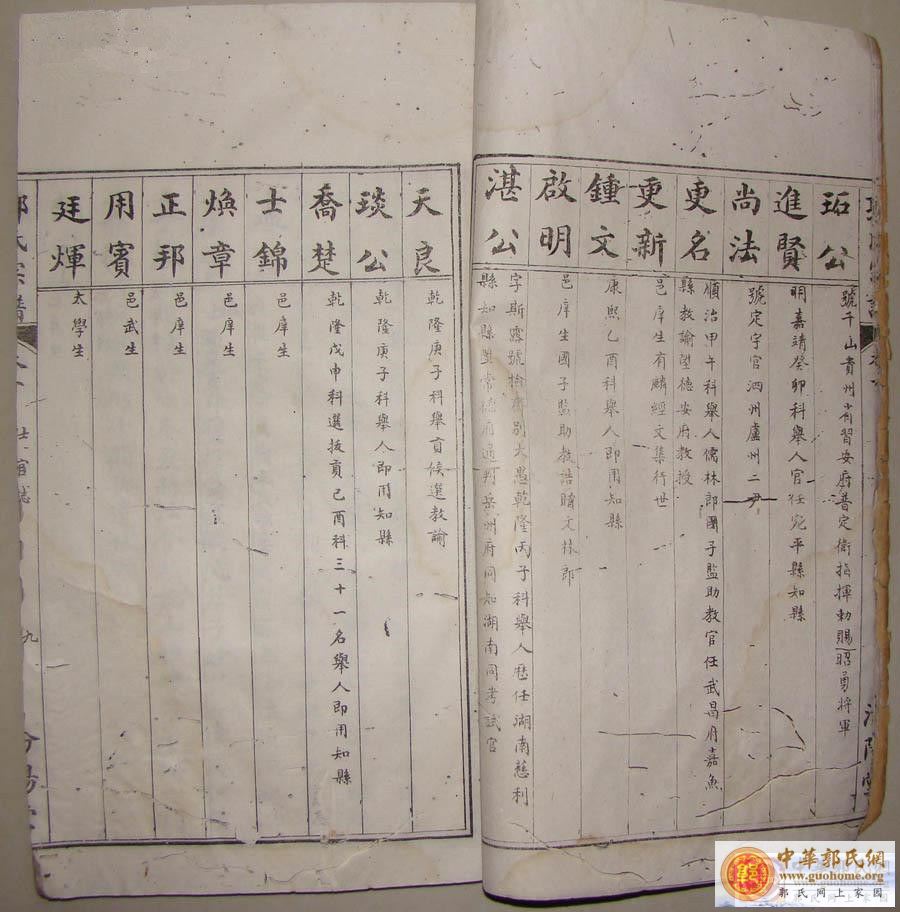 珤公
號千山貴州省習安府普定衛指揮勅賜昭勇將軍
進賢
明嘉靖癸卯科舉人官任宛平縣知縣
尚法
號定宇官泗州盧州二尹
更名
順治甲午科舉人儒林郎國子監助教官任武昌府嘉魚
縣教諭望德安府教授
更新
邑庠生有麟經文集行世
鍾文
康熙乙酉科舉人即用知縣
啟明
邑庠生國子監助教誥贈文林郎
湛公
字斯露號 別大愚乾隆丙子科舉人歷任湖南慈利
縣知縣 常德府通判岳州府同知湖南同考試官
天良
乾隆庚子科舉貢候選教諭
琰公
乾隆庚子科舉人即用知縣
喬楚
乾隆戊申科選拔貢己酉科三十一名舉人即用知縣
士錦
邑庠生
煥章
邑庠生
正邦
邑庠生
用賓
邑武生
廷煇
太學生
氏宗譜
仕宦誌
九
汾陽堂
中華郭氏網
www.guohome.org
郭氏网上家园